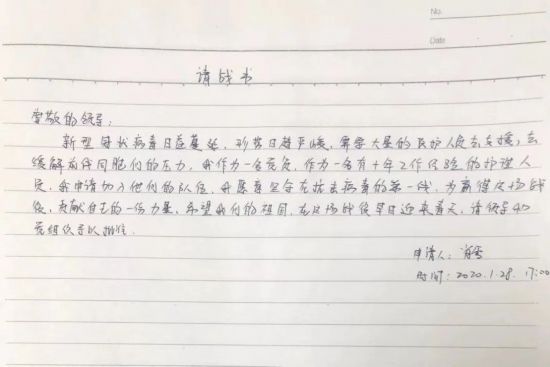 No.
Date
请战书
尊敬的领导:
新型冠状病毒日益蔓延,形势日趋严峻,需要大量的医护人员去支援,去
缓解前线同胞们的压力,我作为一名党员,作为一名有十年工作经验的护理人
员,我申请加入他们的队伍,我愿意坚守在抗击病毒的第一线,为赢得这场战
役,贡献自己的一份力量,希望我们的祖国,在这场战役早日迎来春天,请领导和
党组织予以批准.
申请人:
时间: 2020.1.28. 17:00